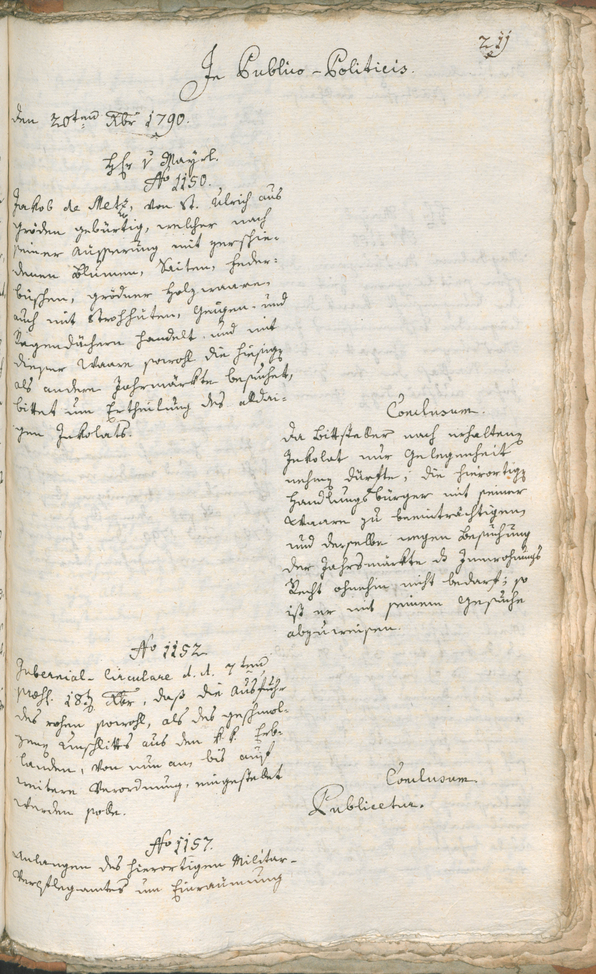 211
In Publico-Politicis.
den 20ten Xbr 1790.
Hr. v Mayrl.
No 1150.
Jakob de Metz, von St. Ulrich aus
gröden gebürtig, welcher nach
seiner Äusserung mit verschie-
denen Blumen, Saiten, Feder-
büschen, grödner Holzwaaren,
auch mit Strohhüten, Geigen- und
Regendächern handelt und mit
dieser Waare sowohl die hiesige
als andere Jahrmärkte besuchet,
bittet um Ertheilung des allhi-
gen Inkolats.
Conclusum.
Da Bittsteller nach erhaltenen
Inkolat nur Gelegenheit
nehmen dürfte, die hierortige
Handlungsbürger mit seiner
Waare zu beeinträchtigen,
und derselbe wegen Besuchung
der Jahrsmärkte das Innwohnungs
Recht ohnehin nicht bedarf; so
ist er mit seinem Gesuche
abzuweisen.
No 1152.
Gubernial-Circulare d. d. 7ten
præs. 18ten Xbr, daß die Ausfuhr
des rohen sowohl, als des geschmol-
zenen Unschlitts aus den k. k. Erb-
landen, von nun an bis auf
weitere Verordnung, eingestellet
werden solle.
Conclusum
Publicetur.
No 1157.
Anlangen des hierortigen Militar-
Verpflegamtes um Einraumung